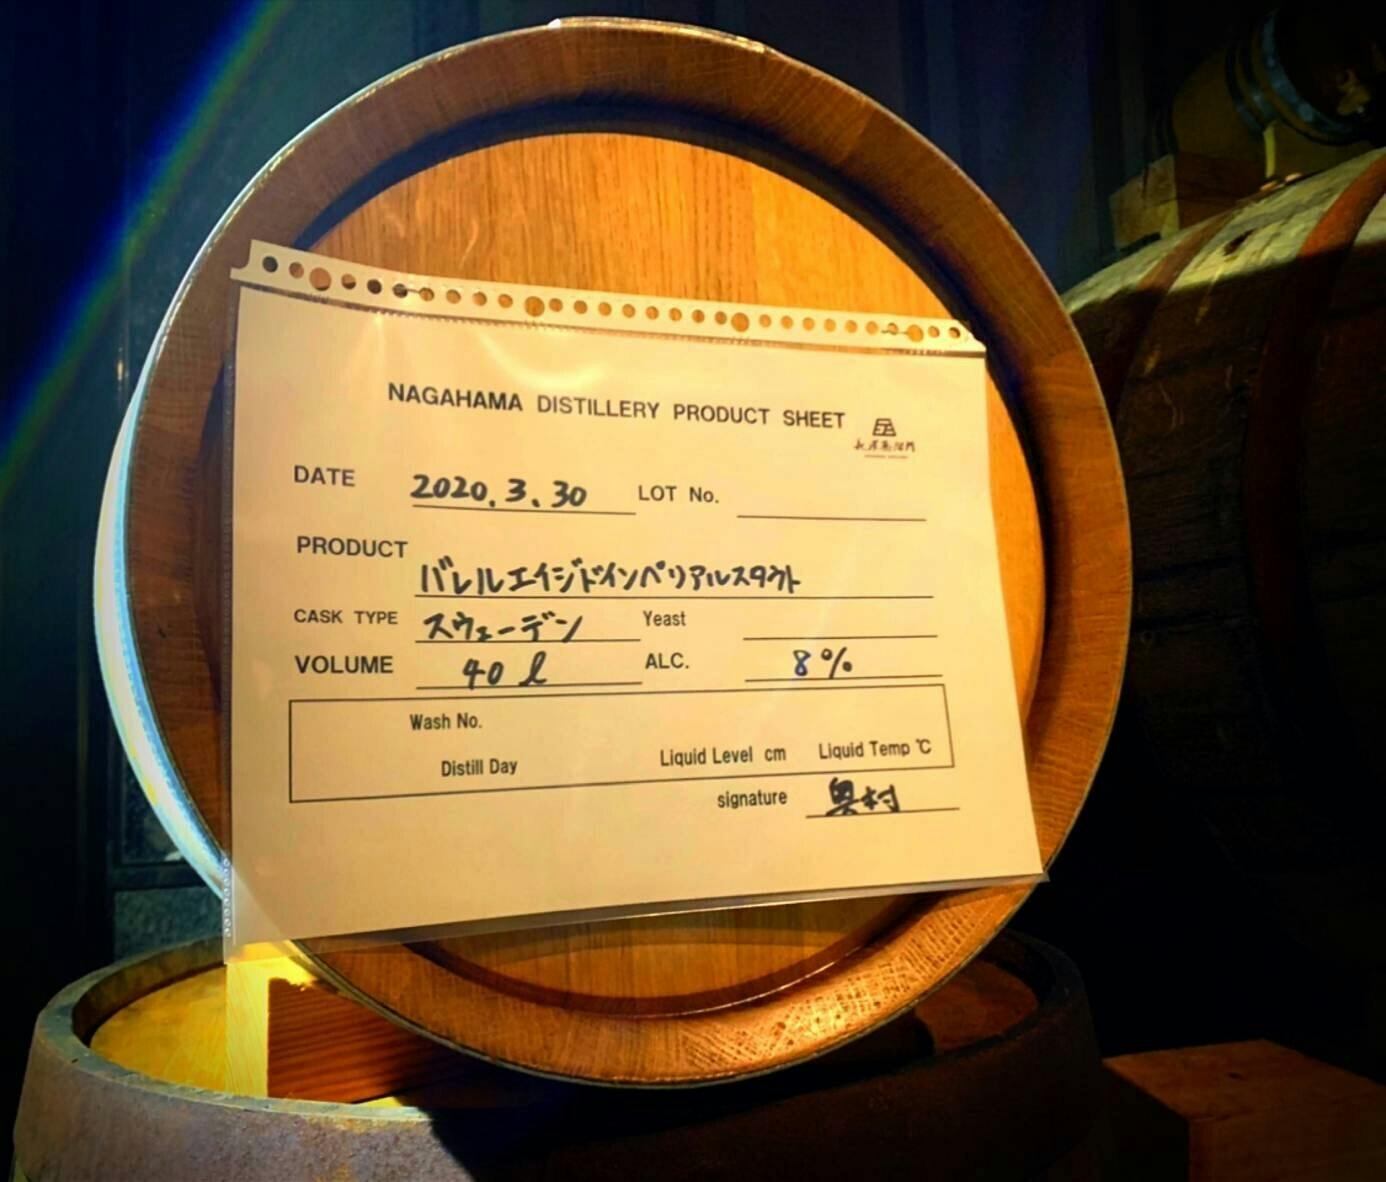 NAGAHAMA DISTILLERY PRODUCT SHEET
DATE 2020.3.30 LOT No.
PRODUCT バレルエイジドインペリアルスタウト
CASK TYPE スウェーデン Yeast
VOLUME 40 ℓ ALC. 8%
Wash No.
Distill Day Liquid Level cm Liquid Temp ℃
signature 奥村